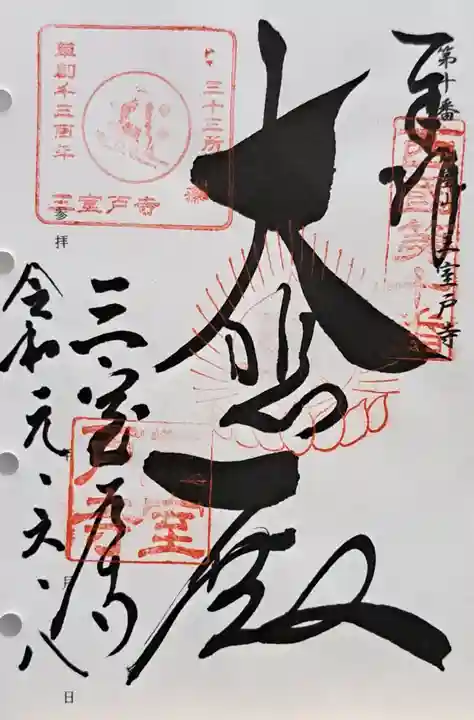 第十番 三室戸寺
奉拝
西國第十番
大悲殿
三室戸寺
令和元、六、八
三十三所
草創千三百年
三室戸寺
参拝
日